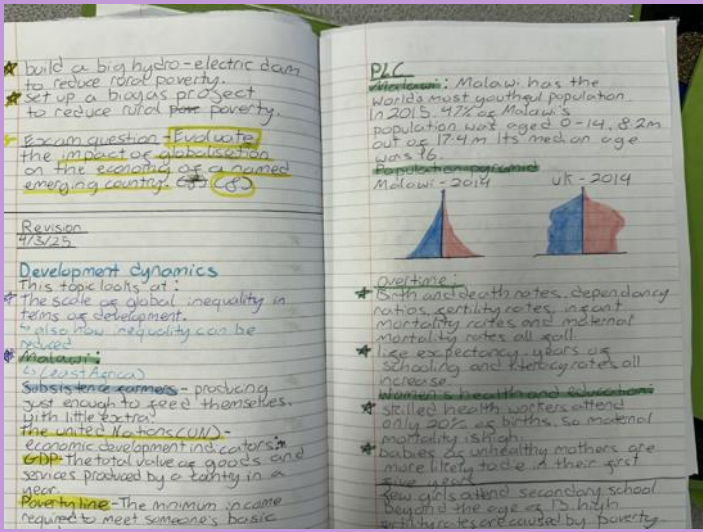 build a big hydro-electric dam
to reduce rural poverty.
set up a biogas project
to reduce rural poverty.
Exam question - Evaluate
the impact of globalisation
on the economy of a named
emerging country. (8)
Revision
4/3/25
Development dynamics
This topic looks at:
The scale of global inequality in
terms of development.
↳ also how inequality can be
reduced
Malawi:
↳ (East Africa)
Subsistence farmers - producing
just enough to feed themselves.
with little extra.
The United Nations (UN) -
economic development indicators:
GDP - The total value of goods and
services produced by a contry in a
year.
Poverty line - The minimum income
required to meet someone's basic
PLC
Malawi: Malawi has the
worlds most youthful population.
In 2015, 47% of Malawi's
population was aged 0-14, 8.2m
out of 17.4m Its median age
was 16.
Population pyramid
Malawi - 2014
UK - 2014
Overtime:
Birth and death rates, dependancy
ratios, fertility rates, infant
mortality rates and maternal
mortality rates all fall.
life expectancy, years of
schooling and literacy rates all
increase.
Women's health and education:
skilled health workers attend
only 20% of births, so maternal
mortality is high.
babies of unhealthy mothers are
more likely to die in their first
five years
few girls attend secondary school
beyond the age of 15. high
fertility rates are caused by poverty